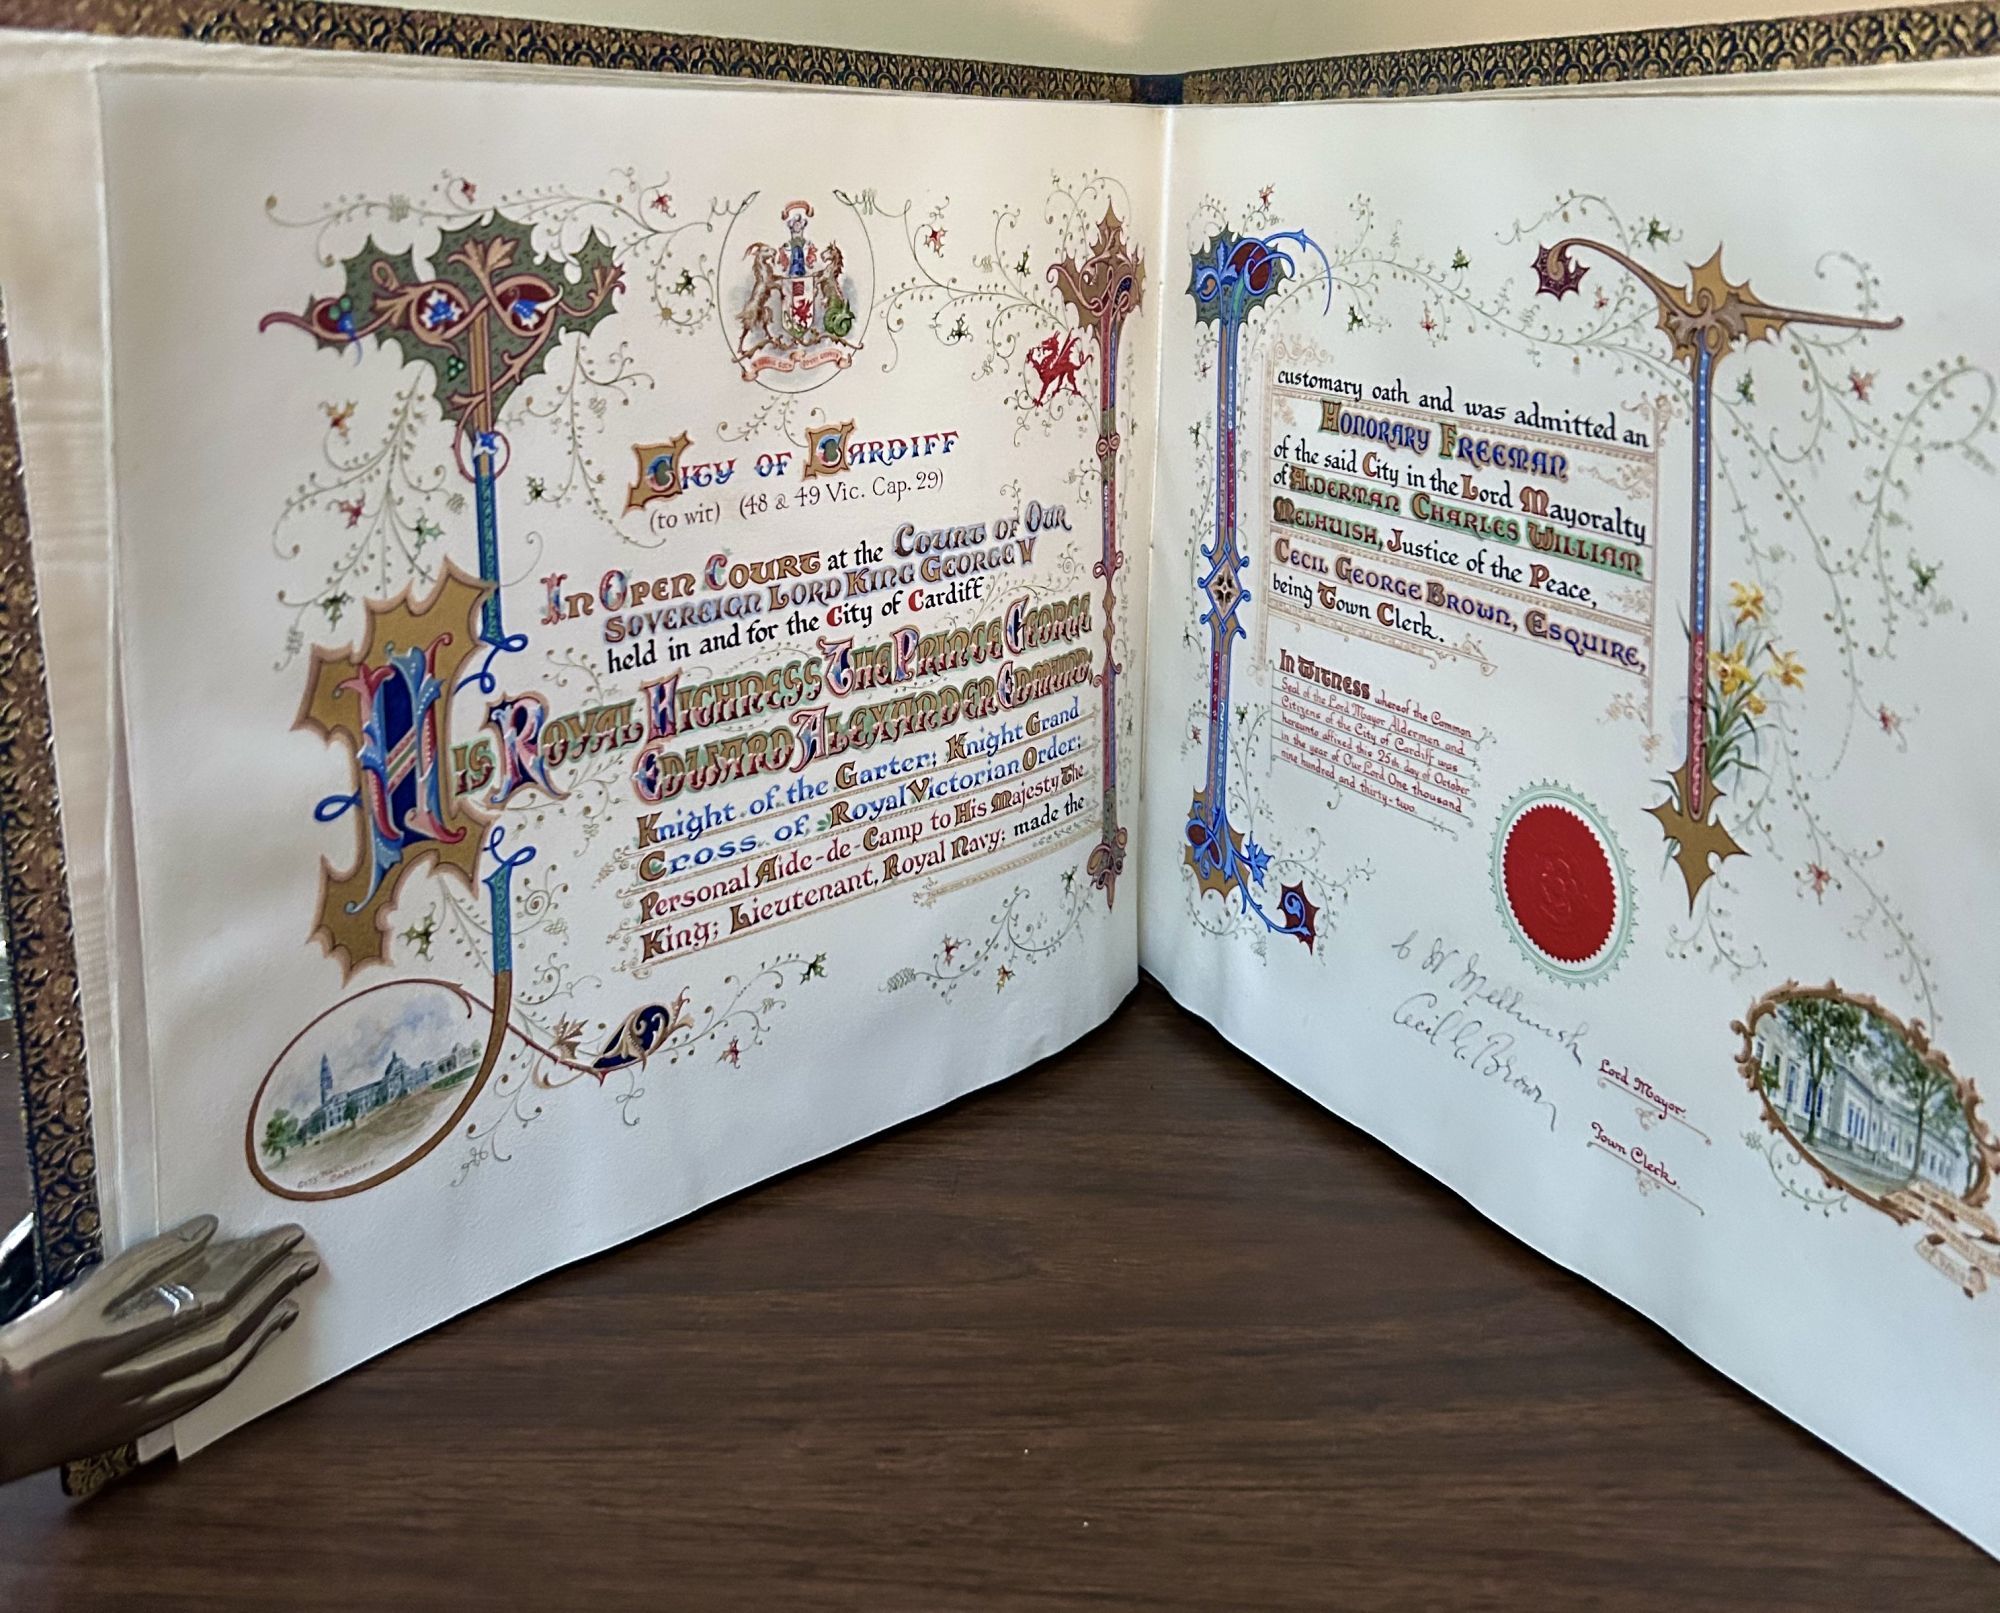 City of Cardiff
(to wit) (48 & 49 Vic. Cap. 29)
In Open Court at the Court of Our
Sovereign Lord King George V
held in and for the City of Cardiff
His Royal Highness The Prince George
Edward Alexander Edmund,
Knight of the Garter; Knight Grand
Cross of Royal Victorian Order;
Personal Aide-de-Camp to His Majesty The
King; Lieutenant, Royal Navy; made the
City Hall
Cardiff
customary oath and was admitted an
Honorary Freeman
of the said City in the Lord Mayoralty
of Alderman Charles William
Melhuish, Justice of the Peace,
Cecil George Brown, Esquire,
being Town Clerk.
In Witness whereof the Common
Seal of the Lord Mayor Aldermen and
Citizens of the City of Cardiff was
hereunto affixed this 25th day of October
in the year of Our Lord One thousand
nine hundred and thirty-two.
C W Melhuish
Lord Mayor.
Cecil G. Brown
Town Clerk.